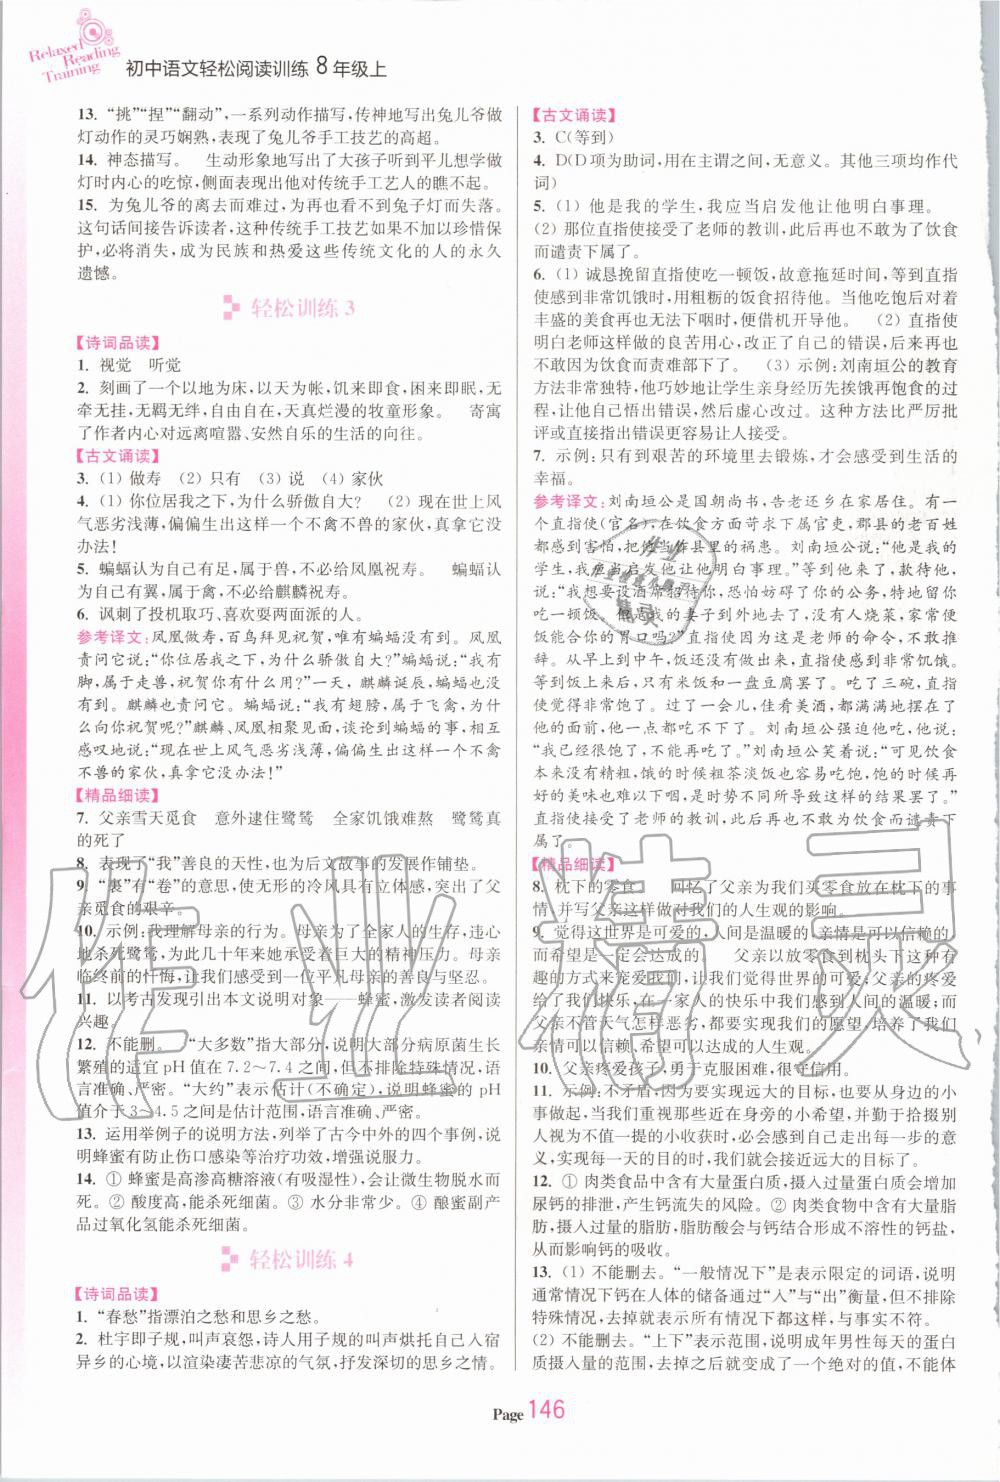 Relaxed
Reading
Training
初中语文轻松阅读训练 8 年级上
13. “挑”“捏”“翻动”，一系列动作描写，传神地写出兔儿爷做
灯动作的灵巧娴熟，表现了兔儿爷手工技艺的高超。
14. 神态描写。 生动形象地写出了大孩子听到平儿想学做
灯时内心的吃惊，侧面表现出他对传统手工艺人的瞧不起。
15. 为兔儿爷的离去而难过，为再也看不到兔子灯而失落。
这句话间接告诉读者，这种传统手工技艺如果不加以珍惜保
护，必将消失，成为民族和热爱这些传统文化的人的永久
遗憾。
轻松训练 3
【诗词品读】
1. 视觉 听觉
2. 刻画了一个以地为床，以天为帐，饥来即食，困来即眠，无
牵无挂，无羁无绊，自由自在，天真烂漫的牧童形象。 寄寓
了作者内心对远离喧嚣、安然自乐的生活的向往。
【古文诵读】
3. （1）做寿 （2）只有 （3）说 （4）家伙
4. （1）你位居我之下，为什么骄傲自大？ （2）现在世上风
气恶劣浅薄，偏偏生出这样一个不禽不兽的家伙，真是没
办法！
5. 蝙蝠认为自己有足，属于兽，不必给凤凰祝寿。 蝙蝠认
为自己有翼，属于禽，不必给麒麟祝寿。
6. 讽刺了投机取巧、喜欢耍两面派的人。
参考译文：凤凰做寿，百鸟拜见祝贺，唯有蝙蝠没到。凤凰
责问它说：“你位居我之下，为什么骄傲自大？”蝙蝠说：“我有
脚，属于走兽，祝贺你有什么用？”一天，麒麟诞辰，蝙蝠也没
有到。麒麟也责问它。蝙蝠说：“我有翅膀，属于飞禽，为什
么向你祝贺呢？”麒麟、凤凰相聚见面，谈论到蝙蝠的事，相互
感叹地说：“现在世上风气恶劣浅薄，偏偏生出这样一个不禽
不兽的家伙，真是没办法！”
【精品细读】
7. 父亲雪天觅食 意外逮住鹭鸶 全家饥饿难熬 鹭鸶真
的死了
8. 表现了“我”善良的天性，也为后文故事的发展作铺垫。
9. “裹”有“卷”的意思，使无形的冷风具有立体感，突出了父
亲觅食的艰辛。
10. 示例：我理解母亲的行为。母亲为了全家人的生存，违心
地杀死鹭鸶，为此几十年来她承受着巨大的精神压力。母亲
临终前的忏悔，让我们感受到一位平凡母亲的善良与坚忍。
11. 以考古发现引出本文说明对象——蜂蜜，激发读者阅读
兴趣。
12. 不能删。 “大多数”指大部分，说明大部分病原菌生长
繁殖的适宜 pH 值在 7.2～7.4 之间，但不排除特殊情况，语
言准确、严密。“大约”表示估计（不确定），说明蜂蜜的 pH
值介于 3～4.5 之间是估计范围，语言准确、严密。
13. 运用举例子的说明方法，列举了古今中外的四个事例，说
明蜂蜜有防止伤口感染等治疗功效，增强说服力。
14. ① 蜂蜜是高渗高糖溶液（有吸湿性），会让微生物脱水而
死。② 酸度高，能杀死细菌。③ 水分非常少。④ 酿蜜副产
品过氧化氢能杀死细菌。
轻松训练 4
【诗词品读】
1. “春愁”指漂泊之愁和思乡之愁。
2. 杜宇即子规，叫声哀怨，诗人用子规的叫声烘托自己人宿
异乡的心境，以渲染凄苦悲凉的气氛，抒发深切的思乡之情。
【古文诵读】
3. C（等到）
4. D（D 项为助词，用在主谓之间，无意义。其他三项均作代
词）
5. （1）他是我的学生，我应当启发他让他明白事理。
（2）那位直指使接受了老师的教训，此后再也不敢为了饮食
而谴责下属了。
6. （1）诚恳挽留直指使吃一顿饭，故意拖延时间，等到直指
使感到非常饥饿时，用粗粝的饭食招待他。当他吃饱后对着
丰盛的美食再无法下咽时，便借机开导他。 （2）直指使
明白老师这样做的良苦用心，改正了自己的错误，后来再也
不因为饮食而责难部下了。 （3）示例：刘南垣公的教育
方法非常独特，他巧妙地让学生亲身经历先挨饿再饱食的过
程，让他自己悟出错误，然后虚心改过。这种方法比严厉
批评或直接指出错误更容易让人接受。
7. 示例：只有到艰苦的环境里去锻炼，才会感受到生活的
幸福。
参考译文：刘南垣公是国朝尚书，告老还乡在家居住。有一
个直指使（官名），在饮食方面苛求下属官吏，郡县的老百姓
都感到很忧虑，把他当作县里的祸患。刘南垣公说：“他是我的
学生，我应当启发他让他明白事理。”等他来了，款待他，
说：“我想要设酒席招待你，恐怕妨碍了你的公务，特地留你
吃一顿饭。但是我的妻子到外地去了，没有人烧菜，家常便
饭能合你的胃口吗？”直指使因为这是老师的命令，不敢推
辞。从早上到中午，饭还没有做出来，直指使感到非常饥饿。
等到饭上来后，只有糙米饭和一盘豆腐罢了。吃了三碗，直指
使觉得非常饱了。过了一会儿，佳肴美酒，都满满地摆在了
他的面前，他一点都吃不下了。刘南垣公强迫他吃，他说：
“我已经很饱了，不能再吃了。”刘南垣公笑着说：“可见饮食
本来没有精粗，饿的时候粗茶淡饭也容易吃，饱的时候再
好的美味也难以下咽，是时势不同导致这样的结果罢了。”
使者明白了老师的教训，此后再也不敢因为饮食而谴责下
属了。
【精品细读】
8. 枕下的零食。 回忆了父亲为我们买零食放在枕下的事
情，并写出了这对我们的人生观的影响。
9. 觉得这世界是可爱的，人间是温暖的，亲情是可以信赖的，
而希望是一定会达成的。 父亲以放零食到枕头下这种有
趣的方式来宠爱我们，让我们觉得世界的可爱；父亲的疼爱
给了我们快乐，在一家人的快乐中我们感到人间的温暖；而
父亲不管天气怎样恶劣，都实现我们的愿望，培养了我们
亲情可以信赖、希望可以达成的人生观。
10. 父亲疼爱孩子，勇于克服困难，很守信用。
11. 示例：不矛盾，因为要实现远大的目标，也要从身边的小
事做起，当我们重视那些近在身旁的小希望，并勤于拾掇别
人视为不足取的小收获时，必会感到自己走出有意义的人生。
实现每一天的目的时，我们也就会接近远大的目标。
12. ① 肉类食品中含有大量蛋白质，摄入过量的蛋白质会增加
尿钙的排泄，产生钙流失的风险。② 肉类食物中含有大量
脂肪，摄入过量的脂肪，脂肪酸会与钙结合形成不溶性的钙盐，
从而影响钙的吸收。
13. （1）不能删去。“一般情况下”是表示限定的词语，说明
通常情况下钙在人体的储备通过“入”与“出”衡量，但不排除
特殊情况，去掉就表示所有情况下都这样，与事实不符。
（2）不能删去。“上下”表示范围，说明成年男性每天的蛋白
质摄入量的范围，去掉之后就变成了一个绝对的值，不能体
Page 146
作业精灵